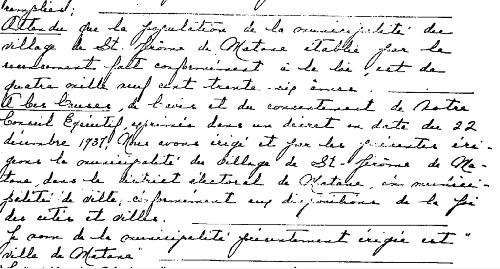 remplies;
Attendu que la population de la municipalité du
village de St. Jérôme de Matane établie par le
recensement fait conformément à la loi, est de
quatre mille neuf cent trente-six âmes.
A Ces Causes, de l'avis et du consentement de Notre
Conseil Exécutif, exprimés dans un décret en date du 22
décembre 1937, Nous avons érigé et par les présentes éri-
geons la municipalité du village de St-Jérôme de Ma-
tane, dans le district électoral de Matane, en munici-
palité de ville, conformément aux dispositions de la loi
des cités et villes.
Le nom de la municipalité présentement érigée est "
ville de Matane"